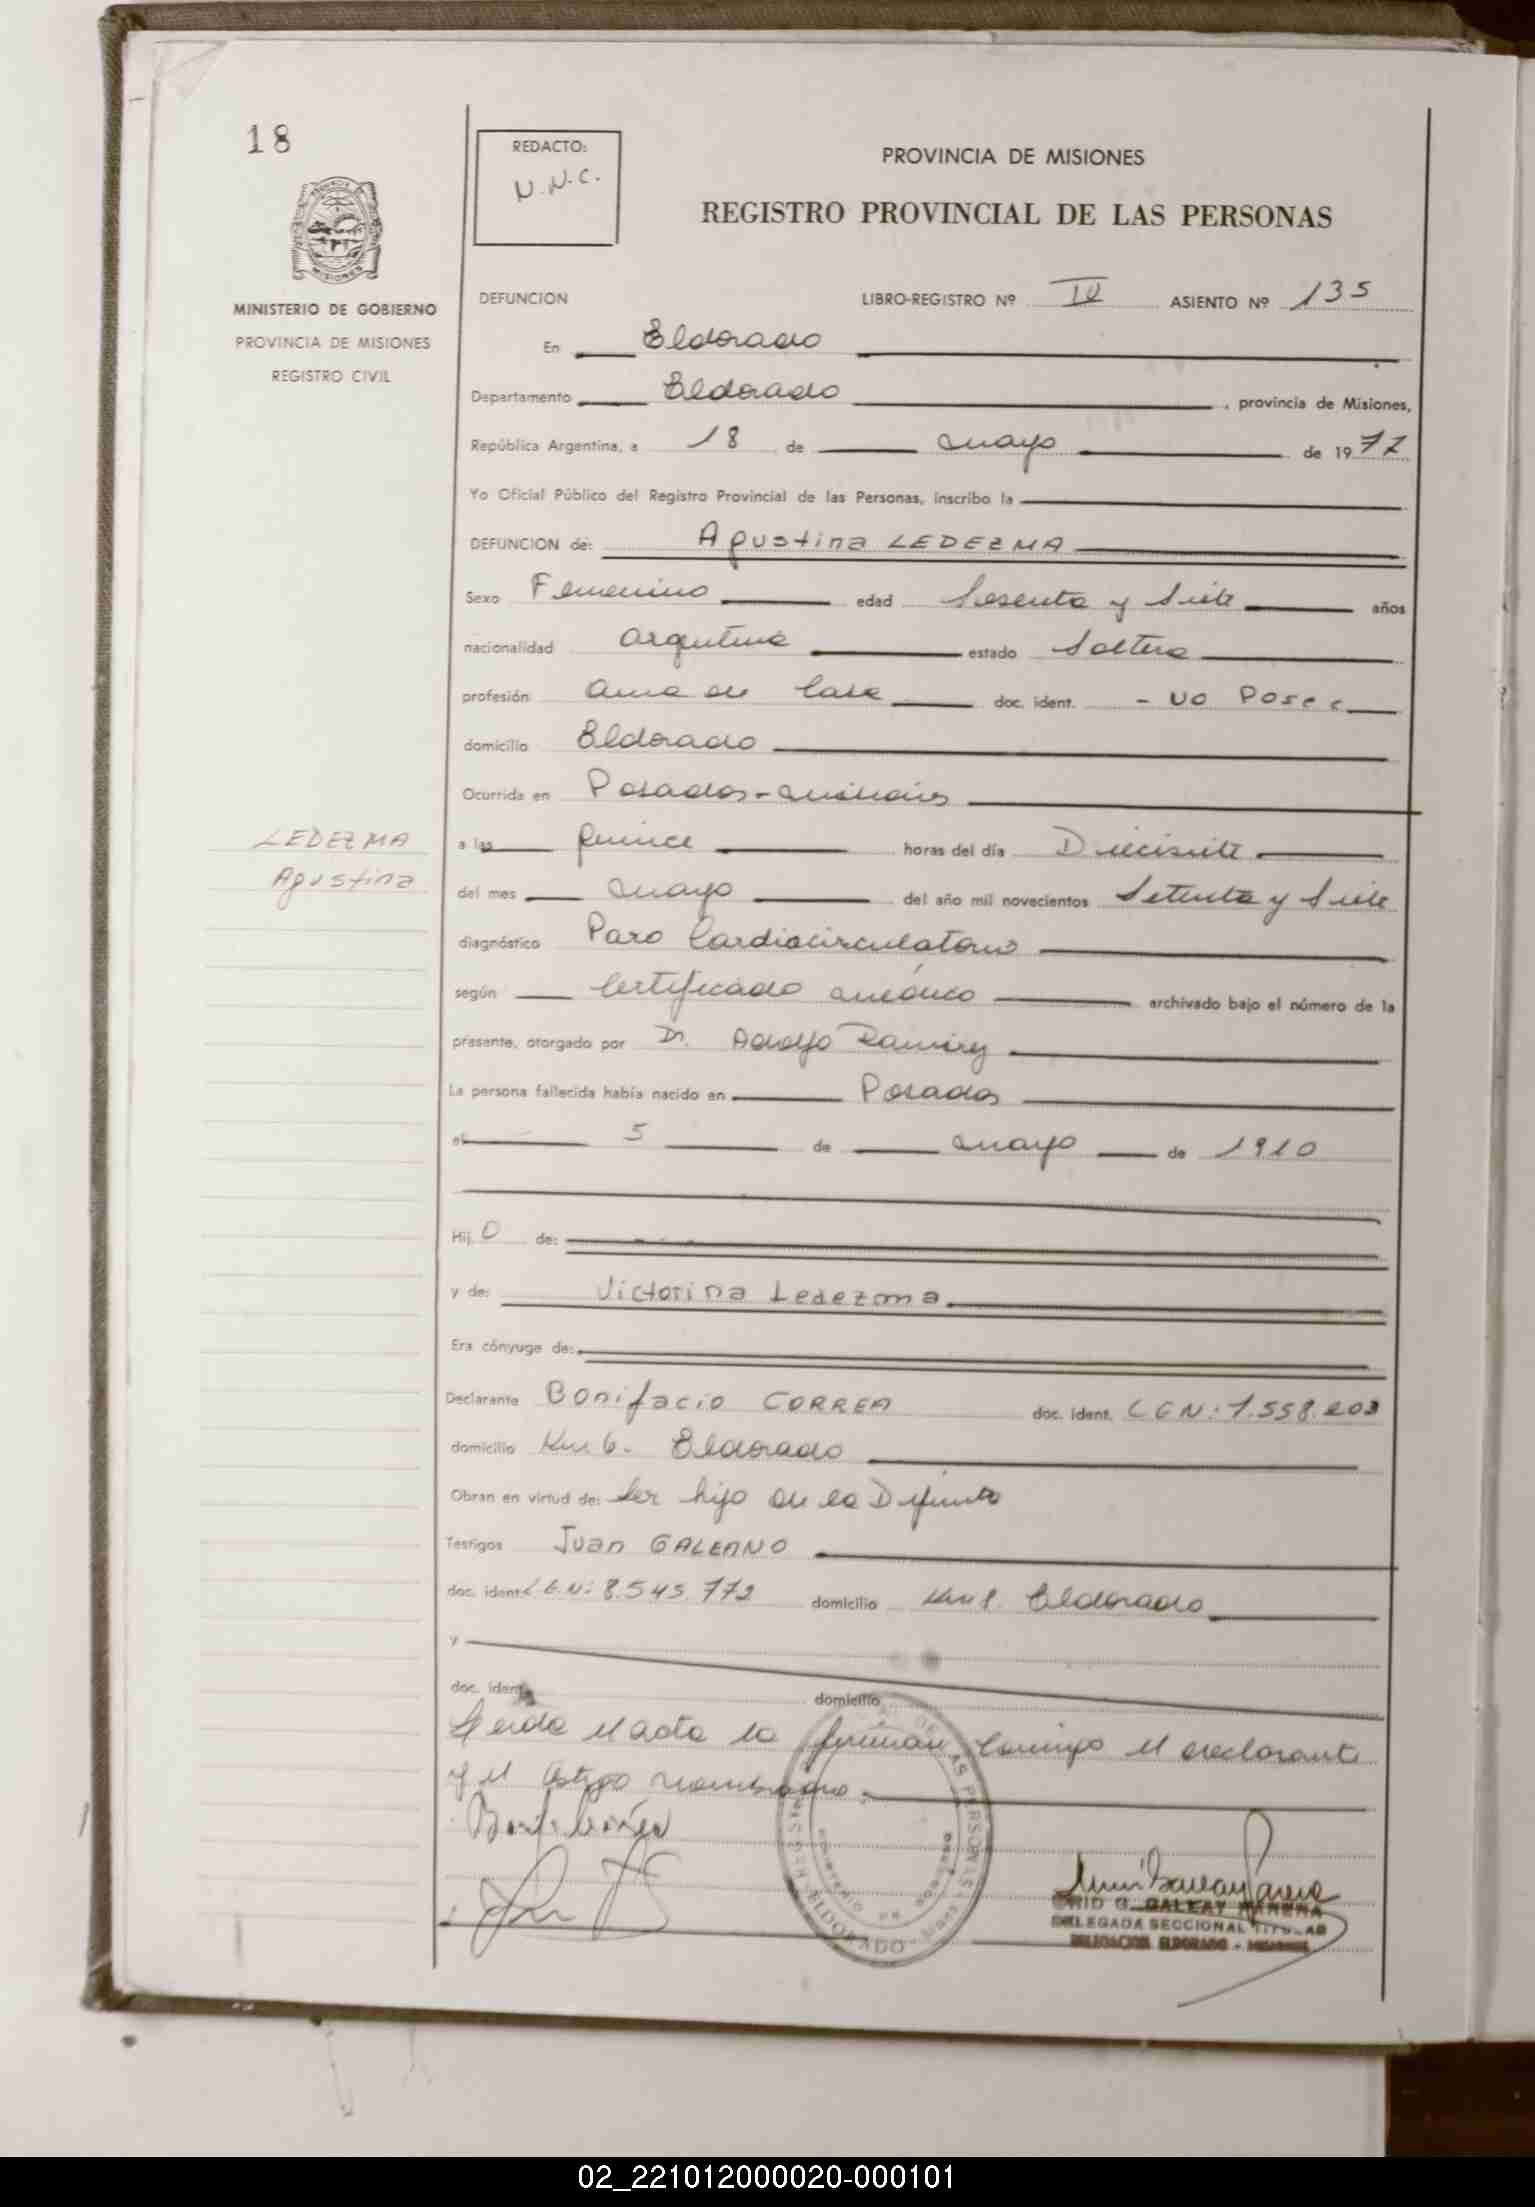 18
REDACTO:
N.N.C.
PROVINCIA DE MISIONES
REGISTRO PROVINCIAL DE LAS PERSONAS
MINISTERIO DE GOBIERNO
PROVINCIA DE MISIONES
REGISTRO CIVIL
DEFUNCION LIBRO-REGISTRO Nº IV ASIENTO Nº 135
En Eldorado
Departamento Eldorado, provincia de Misiones,
República Argentina, a 18 de mayo de 1977
Yo Oficial Público del Registro Provincial de las Personas, inscribo la
DEFUNCION de: Agustina LEDEZMA
Sexo Femenino edad Sesenta y Siete años
nacionalidad argentina estado Soltera
profesión ama de Casa doc. ident. - no Posee
domicilio Eldorado
Ocurrida en Posadas-misiones
LEDEZMA
Agustina
a las quince horas del día Diecisiete
del mes mayo del año mil novecientos Setenta y Siete
diagnóstico Paro Cardiocirculatorio
según Certificado médico archivado bajo el número de la
presente, otorgado por Dr. Adolfo Ramirez
La persona fallecida había nacido en Posadas
el 5 de mayo de 1910
Hij O de:
y de: Victorina Ledezma
Era cónyuge de:
Declarante Bonifacio CORREA doc. ident. LEN: 7.558.203
domicilio Km 6. Eldorado
Obran en virtud de: Ser hijo de la Difunta
Testigos Juan GALEANO
doc. ident. L.E.N: 8.545.772 domicilio Eldorado
y
doc. ident. domicilio
Leida el acta la firman Conmigo el declarante
y el testigo nombrado
DE LAS PERSONAS
MINISTERIO DE GOBIERNO
ELDORADO
G. GALEAY
DELEGADA SECCIONAL TITULAR
DELEGACION ELDORADO - MISIONES
02_221012000020-000101